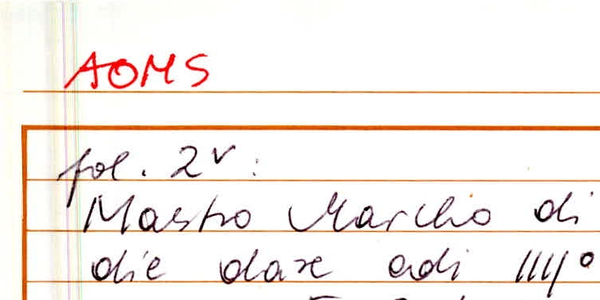 AOMS
fol. 2v:
Mastro Marcho di
die dare adi IIIIº